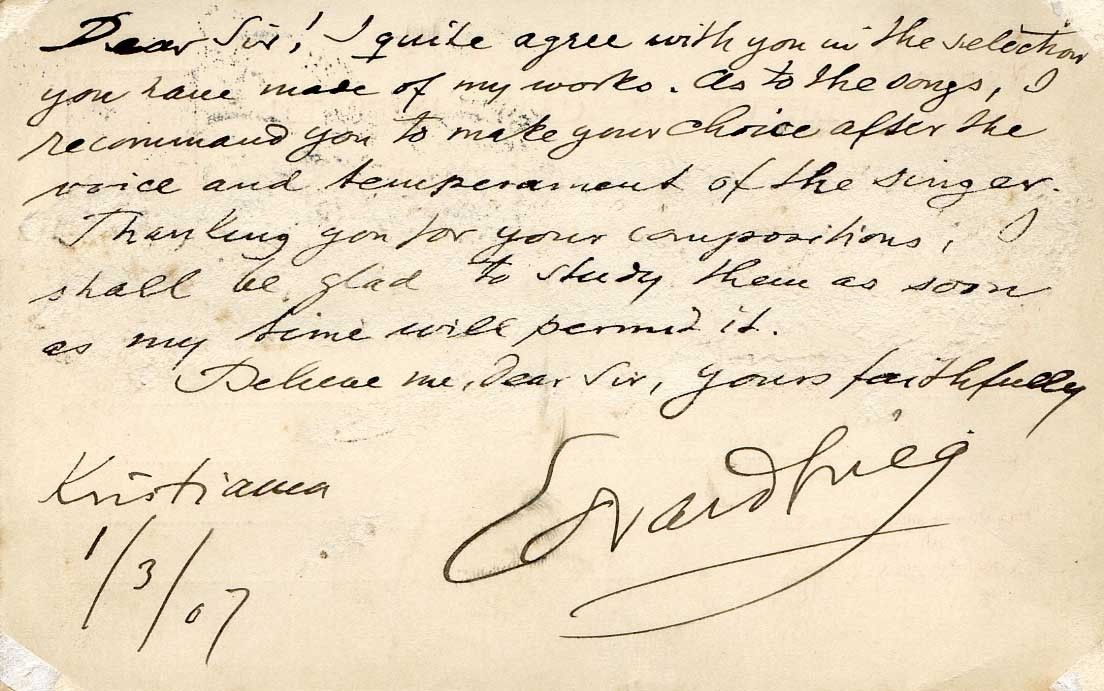 Dear Sir! I quite agree with you in the selection
you have made of my works. As to the songs, I
recommand you to make your choice after the
voice and temperament of the singer.
Thanking you for your compositions, I
shall be glad to study them as soon
as my time will permit it.
Believe me, dear Sir, yours faithfully
Edvard Grieg
Kristiania
1/3/07